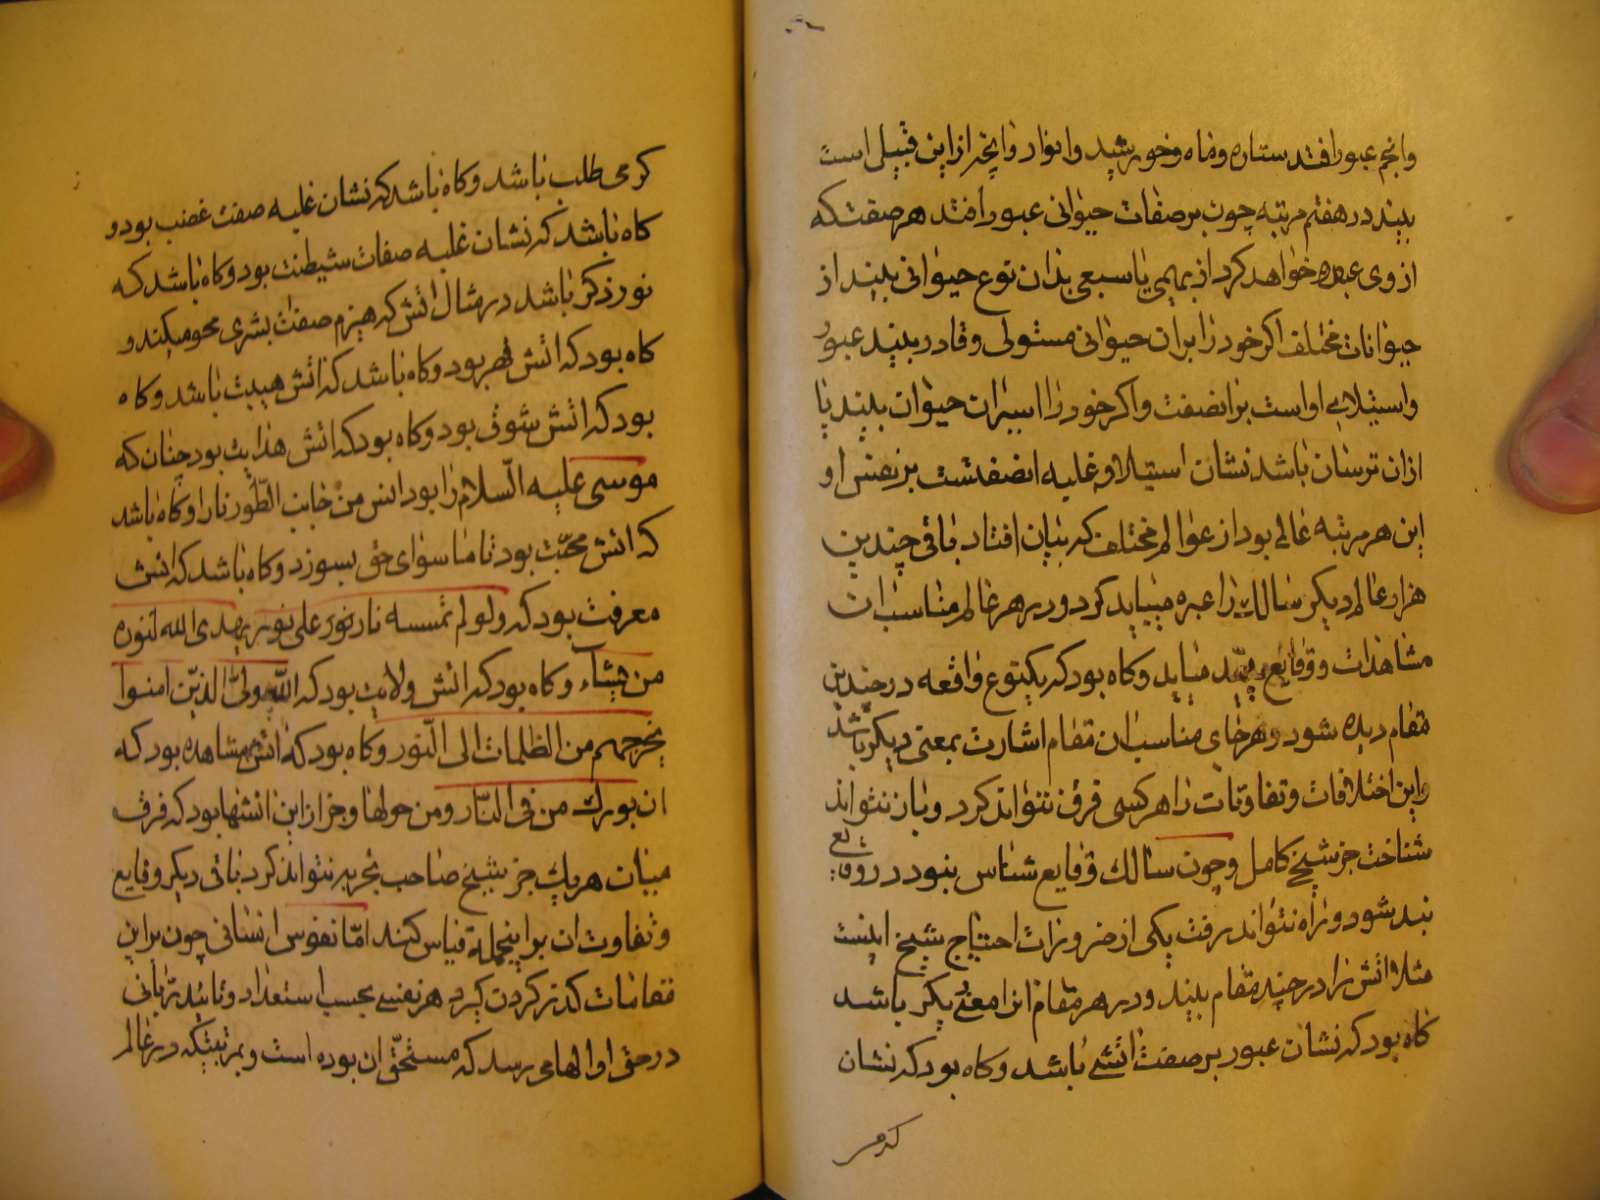 وانجم عبور افتد ستاره و ماه و خورشید و انوار و آنچه از این قبیل است
بیند در هفتم مرتبه چون بر صفات حیوانی عبور افتد هر صفت که
از وی عبره خواهد کرد از بهیمی یا سبعی بدان نوع حیوانی بیند از
حیوانات مختلف اکر خود را بر ان حیوانی مستولی و قادر بیند عبور
و استیلای او است بر انصفت و اکر خود را اسیر ان حیوان بیند یا
از ان ترسان باشد نشان استیلا و غلبه انصفتست بر نفس او و
این هر مرتبه عالمی بود از عوالم مختلف که بیان افتاد باقی چندین
هزار عالم دیکر سالک را عبره میباید کرد و در هر عالم مناسب ان
مشاهدات و وقایع پدید میاید و کاه بود که یکنوع واقعه در چندین
مقام دیده شود و هر جای مناسب ان مقام اشارت بمعنی دیکر باشد
و این اختلافات و تفاوتات را هر کسی فرق نتواند کرد و باز نتواند
شناخت جز شیخ کامل و چون سالک وقایع شناس نبود در وقایع
بند شود و راه نتواند رفت یکی از ضرورات احتیاج شیخ اینست
مثلا اتش را در چند مقام بیند و در هر مقام انرا معنی دیکر باشد
کاه بود که نشان عبور بر صفت اتشی باشد و کاه بود که نشان
کرمی
کرمی طلب باشد و کاه باشد که نشان غلبه صفت غضب بود و
کاه باشد که نشان غلبه صفات شیطنت بود و کاه باشد که
نور ذکر باشد در مثال اتش که هیزم صفات بشری محو میکند و
کاه بود که اتش قهر بود و کاه باشد که اتش هیبت باشد و کاه
بود که اتش شوق بود و کاه بود که اتش هدایت بود چنان که
موسی علیه السّلام را بود انس من جانب الطّور نارا و کاه باشد
که اتش محبّت بود تا ماسوای حق بسوزد و کاه باشد که اتش
معرفت بود که و لو لم تمسسه نار نور علی نور یهدی الله لنوره
من یشاء و کاه بود که اتش ولایت بود که اللّه ولیّ الّذین امنوا
یخرجهم من الظلمات الی النّور و کاه بود که اتش مشاهده بود که
ان بورک من فی النّار و من حولها و جز از این اتشها بود که فرق
میان هر یک جز شیخ صاحب تجربه نتواند کرد باقی دیکر وقایع
و تفاوت ان بر اینجمله قیاس کنند امّا نفوس انسانی چون بر این
مقامات کذر کردن کیرد هر نفسی بحسب استعداد و تائید ربّانی
در حق او الهامی رسد که مستحقّ ان بوده است و بمرتبتیکه در عالم